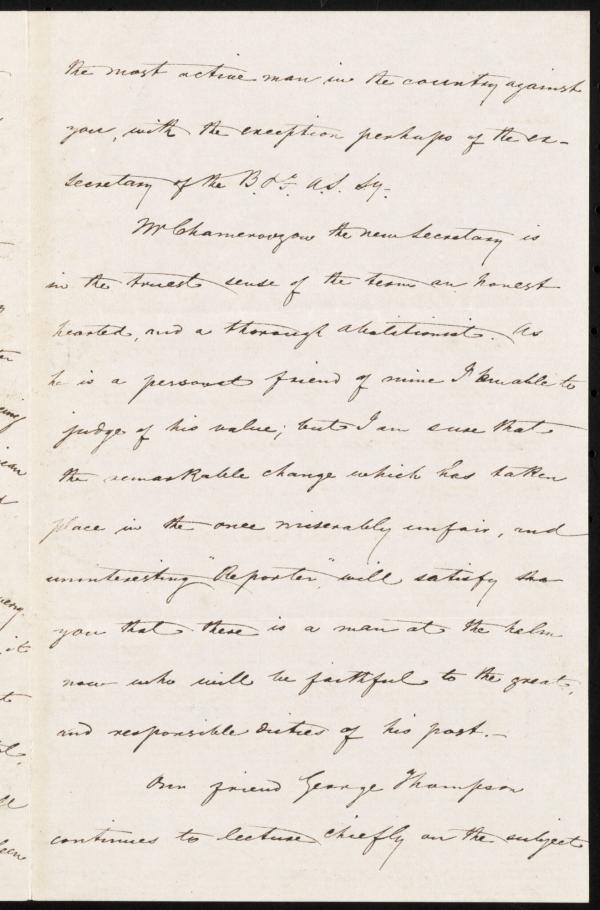 the most active man in the country against
you, with the exception perhaps of the ex-
secretary of the B. & F. A.S. Sy.
Mr Chamerovzow the new Secretary is
in the truest sense of the term an honest
hearted, and a thorough abolitionist. As
he is a personal friend of mine I am able to
judge of his value; but I am sure that
the remarkable change which has taken
place in the once miserably unfair, and
uninteresting "Reporter" will satisfy
you that there is a man at the helm
now who will be faithful to the great,
and responsible duties of his post.—
Our friend George Thompson
continues to lecture chiefly on the subject